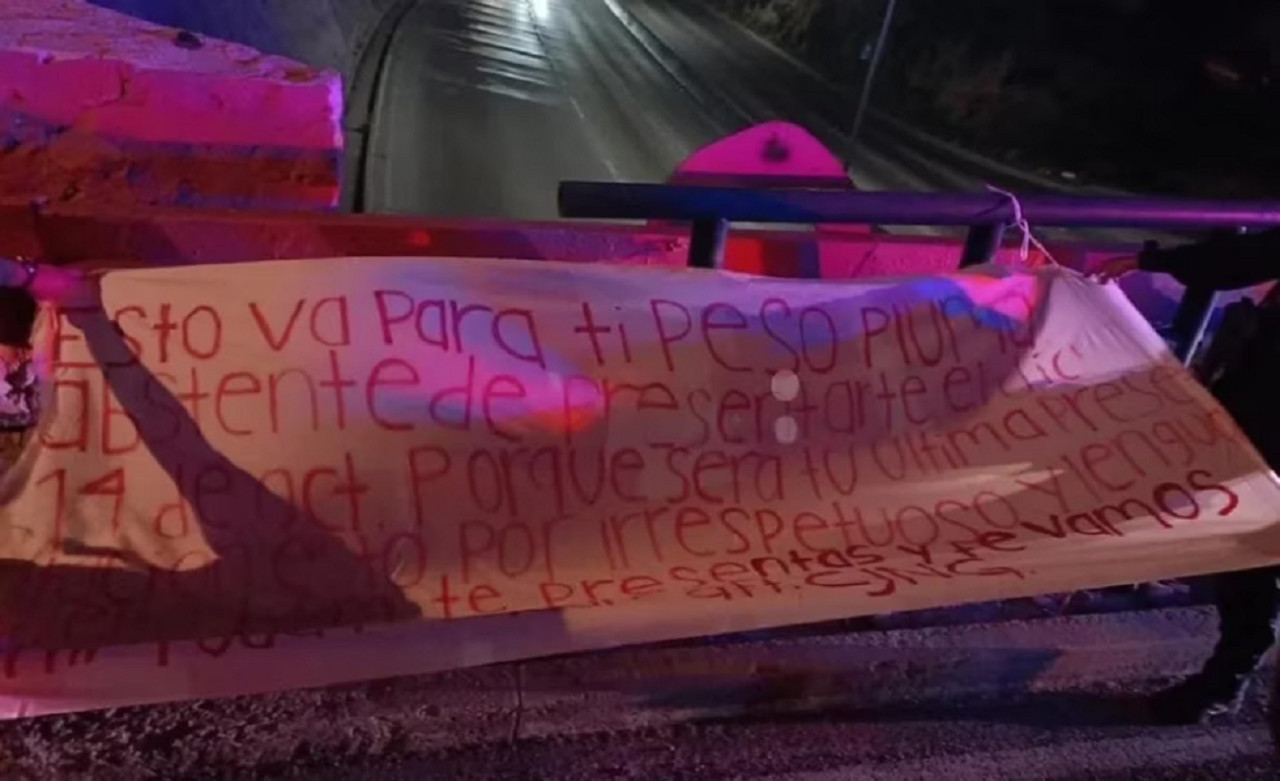 Esto va para ti Peso Pluma
aBstente de presentarte el
14 de oct. Porque sera tu ultima prese
por irrespetuoso y lengu
te presentas y te vamos
att. CJNG.